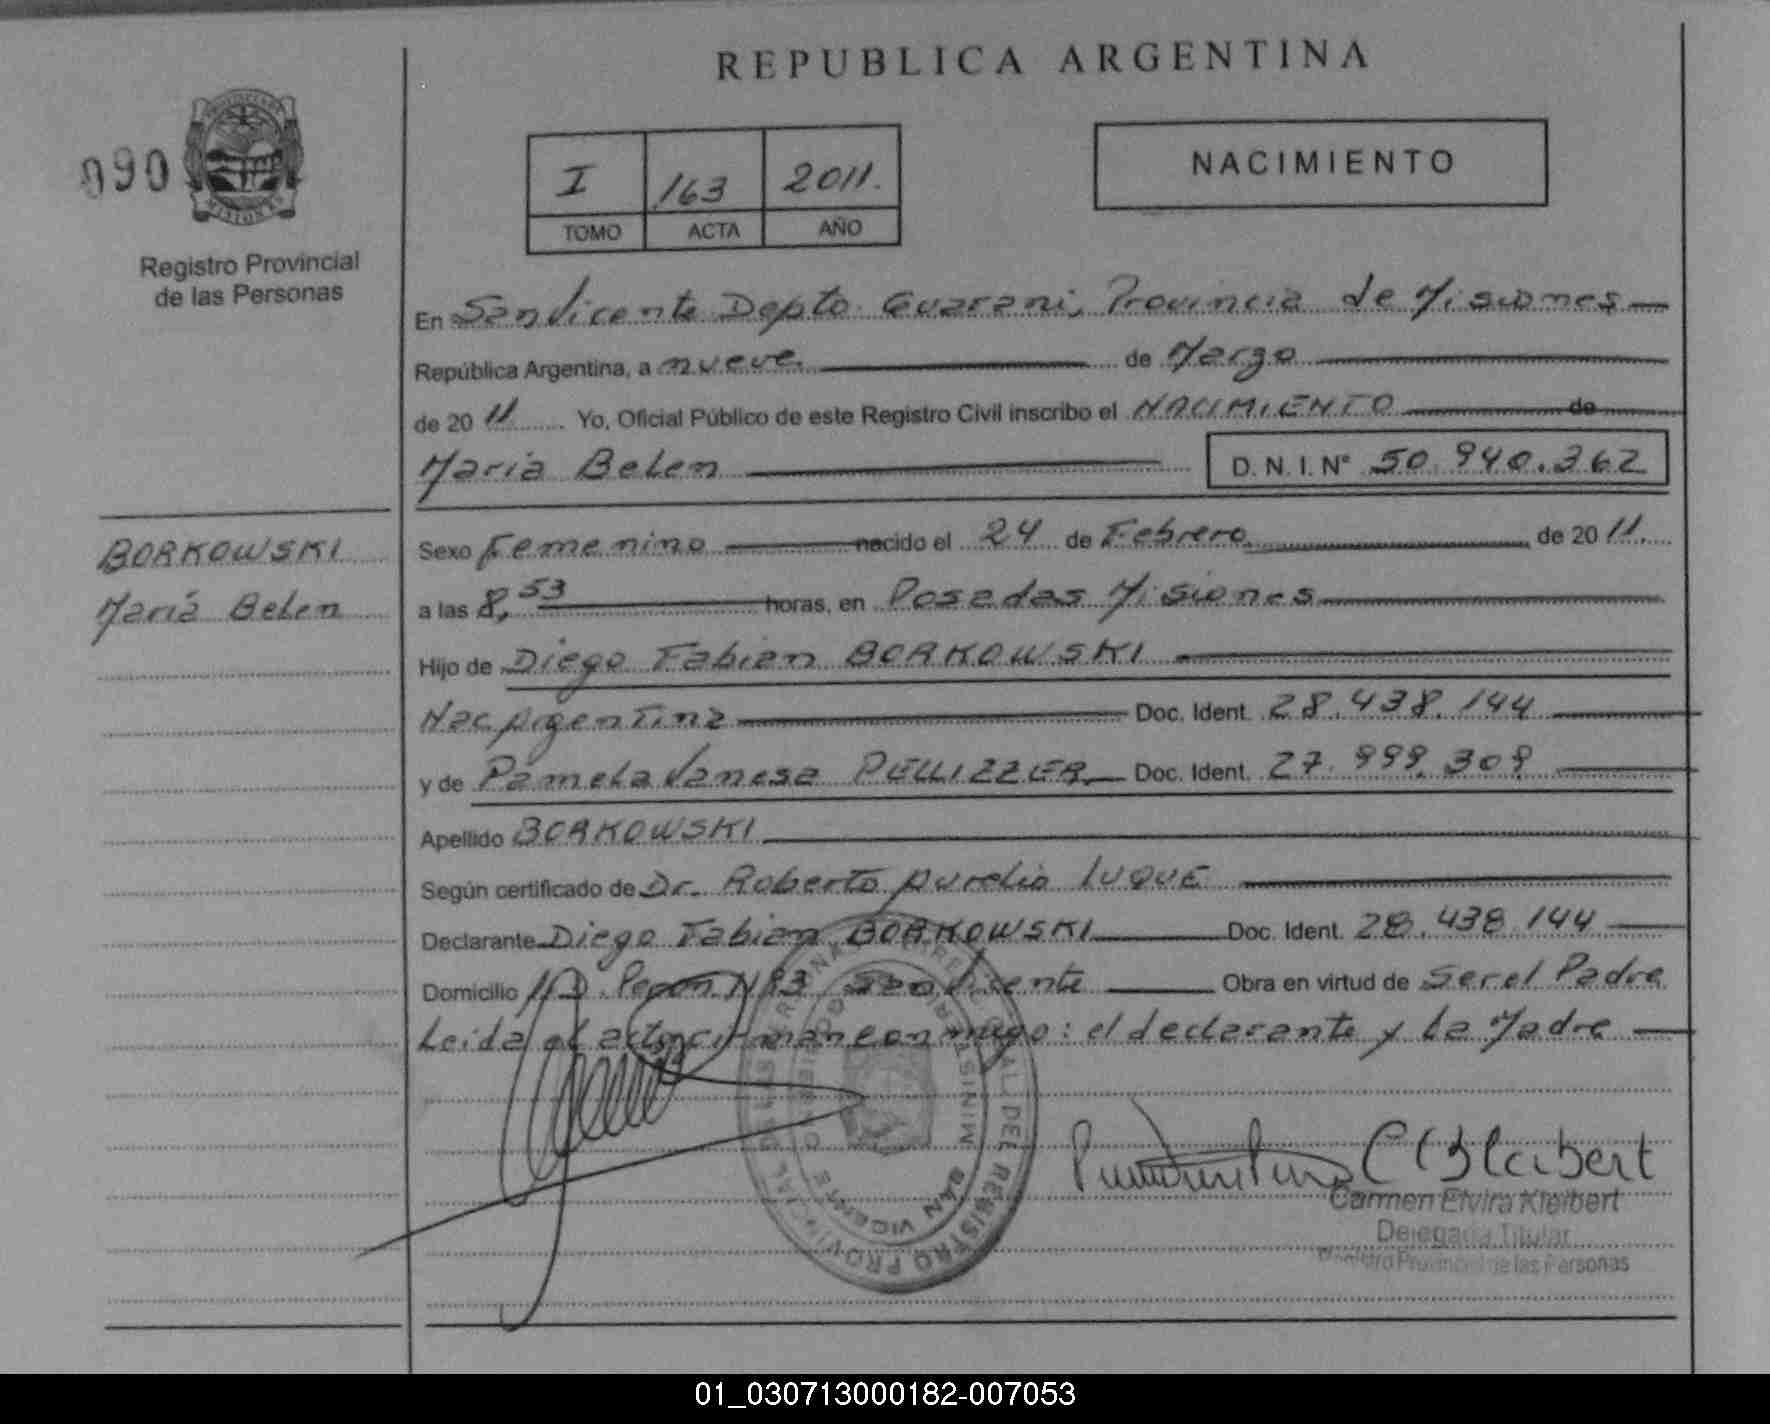 REPUBLICA ARGENTINA
090
PROVINCIA DE
MISIONES
Registro Provincial
de las Personas
I 163 2011.
TOMO ACTA AÑO
NACIMIENTO
En San Vicente Depto. Guarani, Provincia de Misiones
República Argentina, a nueve de Marzo
de 2011 Yo, Oficial Público de este Registro Civil inscribo el NACIMIENTO de
Maria Belen D. N. I. N° 50.940.362
BORKOWSKI
Maria Belen
Sexo Femenino nacido el 24 de Febrero de 2011.
a las 8,53 horas, en Posadas Misiones
Hijo de Diego Fabian BORKOWSKI
Nac Argentina Doc. Ident. 28.438.144
y de Pamela Vanesa PELLIZZER Doc. Ident. 27.999.309
Apellido BORKOWSKI
Según certificado de Dr. Roberto Aurelio LUQUE
Declarante Diego Fabian BORKOWSKI Doc. Ident. 28.438.144
Domicilio Peron San Vicente Obra en virtud de Ser el Padre
Leida el acta firman conmigo: el declarante y La Madre
REGISTRO PROVINCIAL DE LAS
SAN VICENTE
Carmen Elvira Kleibert
Delegada Titular
Registro Provincial de las Personas
01_030713000182-007053